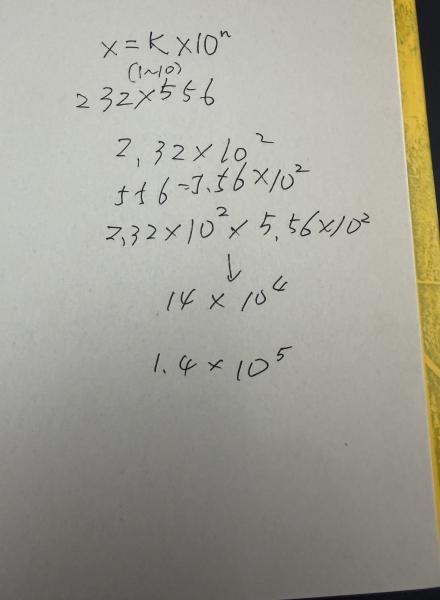 x = K × 10ⁿ
(1~10)
232×556
2.32 × 10²
556 = 5.56 × 10²
2.32 × 10² × 5.56 × 10²
↓
14 × 10⁴
1.4 × 10⁵